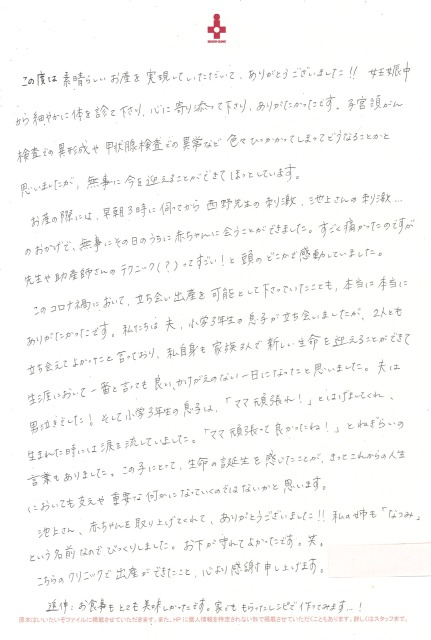 この度は素晴らしいお産を実現していただいて、ありがとうございました!! 妊娠中
から細やかに体を診て下さり、心に寄り添って下さり、ありがたかったです。子宮頸がん
検査での異形成や甲状腺検査での異常など色々ひっかかってしまってどうなることかと
思いましたが、無事に今を迎えることができてほっとしています。
お産の際には、早朝3時に伺ってから西野先生の刺激、池上さんの刺激…
のおかげで、無事にその日のうちに赤ちゃんに会うことができました。すごく痛かったのですが
先生や助産師さんのテクニック(?)ってすごい!と頭のどこかで感動していました。
このコロナ禍において、立ち会い出産を可能として下さっていたことも、本当に本当に
ありがたかったです。私たちは夫、小学3年生の息子が立ち会いましたが、2人とも
立ち会えてよかったと言っており、私自身も家族3人で新しい生命を迎えることができて
生涯において一番と言っても良い、かけがえのない一日になったと思いました。夫は
男泣きでした!そして小学3年生の息子は、「ママ頑張れ!」とはげましてくれ、
生まれた時には涙を流していました。「ママ頑張って良かったね!」とねぎらいの
言葉もありました。この子にとって、生命の誕生を感じたことが、きっとこれからの人生
においても支えや重要な何かになっていくのではないかと思います。
池上さん、赤ちゃんを取り上げてくれて、ありがとうございました!! 私の姉も「なつみ」
という名前なのでびっくりしました。お下が守れてよかったです。笑。
こちらのクリニックで出産ができたこと、心より感謝申し上げます。
追伸:お食事もとても美味しかったです。家でももらったレシピで作ってみます…!
原本はいいたいモファイルに掲載させていただきます。また、HPに個人情報を特定されない形で掲載させていただくこともあります。詳しくはスタッフまで。